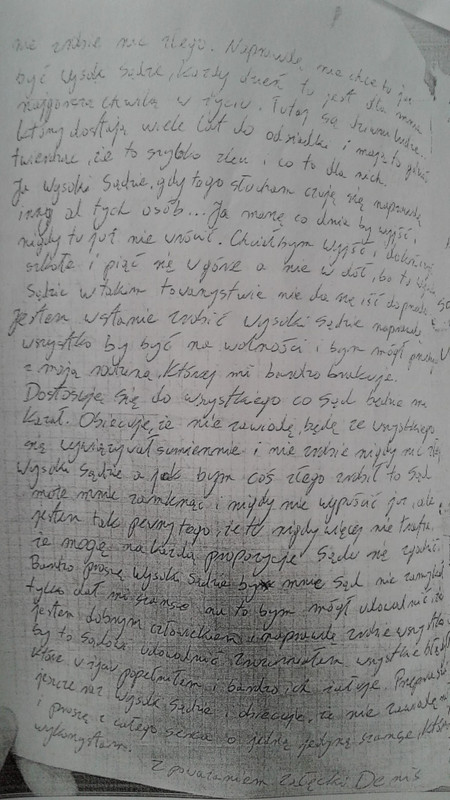 nie zrobię nic złego. Naprawdę nie chcę tu już
być wysoki sądzie, każdy dzień tu jest dla mnie
najgorszą chwilą w życiu. Tutaj są ludzie
którzy dostają wiele lat do odsiadki i mają to gdzieś
twierdzą, że to szybko zleci i co to dla nich.
Ja Wysoki Sądzie, gdy tego słucham czuję się naprawdę
inny od tych osób... Ja marzę co dnia by wyjść i
nigdy tu już nie wrócić. Chciałbym wyjść i dokończyć
szkołę i piąć się w górę a nie w dół, bo tu
Sądzie w takim towarzystwie nie da się iść do przodu.
Jestem wstanie zrobić wysoki sądzie naprawdę
wszystko by być na wolności i bym mógł
z moją rodziną, której mi bardzo brakuje.
Dostosuję się do wszystkiego co Sąd będzie mi
kazał. Obiecuję, że nie zawiodę, będę ze wszystkiego
się wywiązywał sumiennie i nie zrobię nigdy nic złego
Wysoki Sądzie a jak bym coś złego zrobił to Sąd
może mnie zamknąć i nigdy nie wypuścić już, ale
jestem tak pewny tego, że tu nigdy więcej nie trafię,
że mogę na każdą propozycję Sądu się zgodzić.
Bardzo proszę Wysoki Sądzie by mnie Sąd nie zamykał
tylko dał mi szansę na to bym mógł udowodnić, że
jestem dobrym człowiekiem i naprawdę zrobię wszystko
by to Sądowi udowodnić. Zrozumiałem wszystkie błędy
które w życiu popełniłem i bardzo ich żałuję. Przepraszam
jeszcze raz Wysoki Sądzie i obiecuję, że nie zawiodę
i proszę z całego serca o jedną jedyną szansę, którą
wykorzystam.
Z poważaniem Załęcki Denis